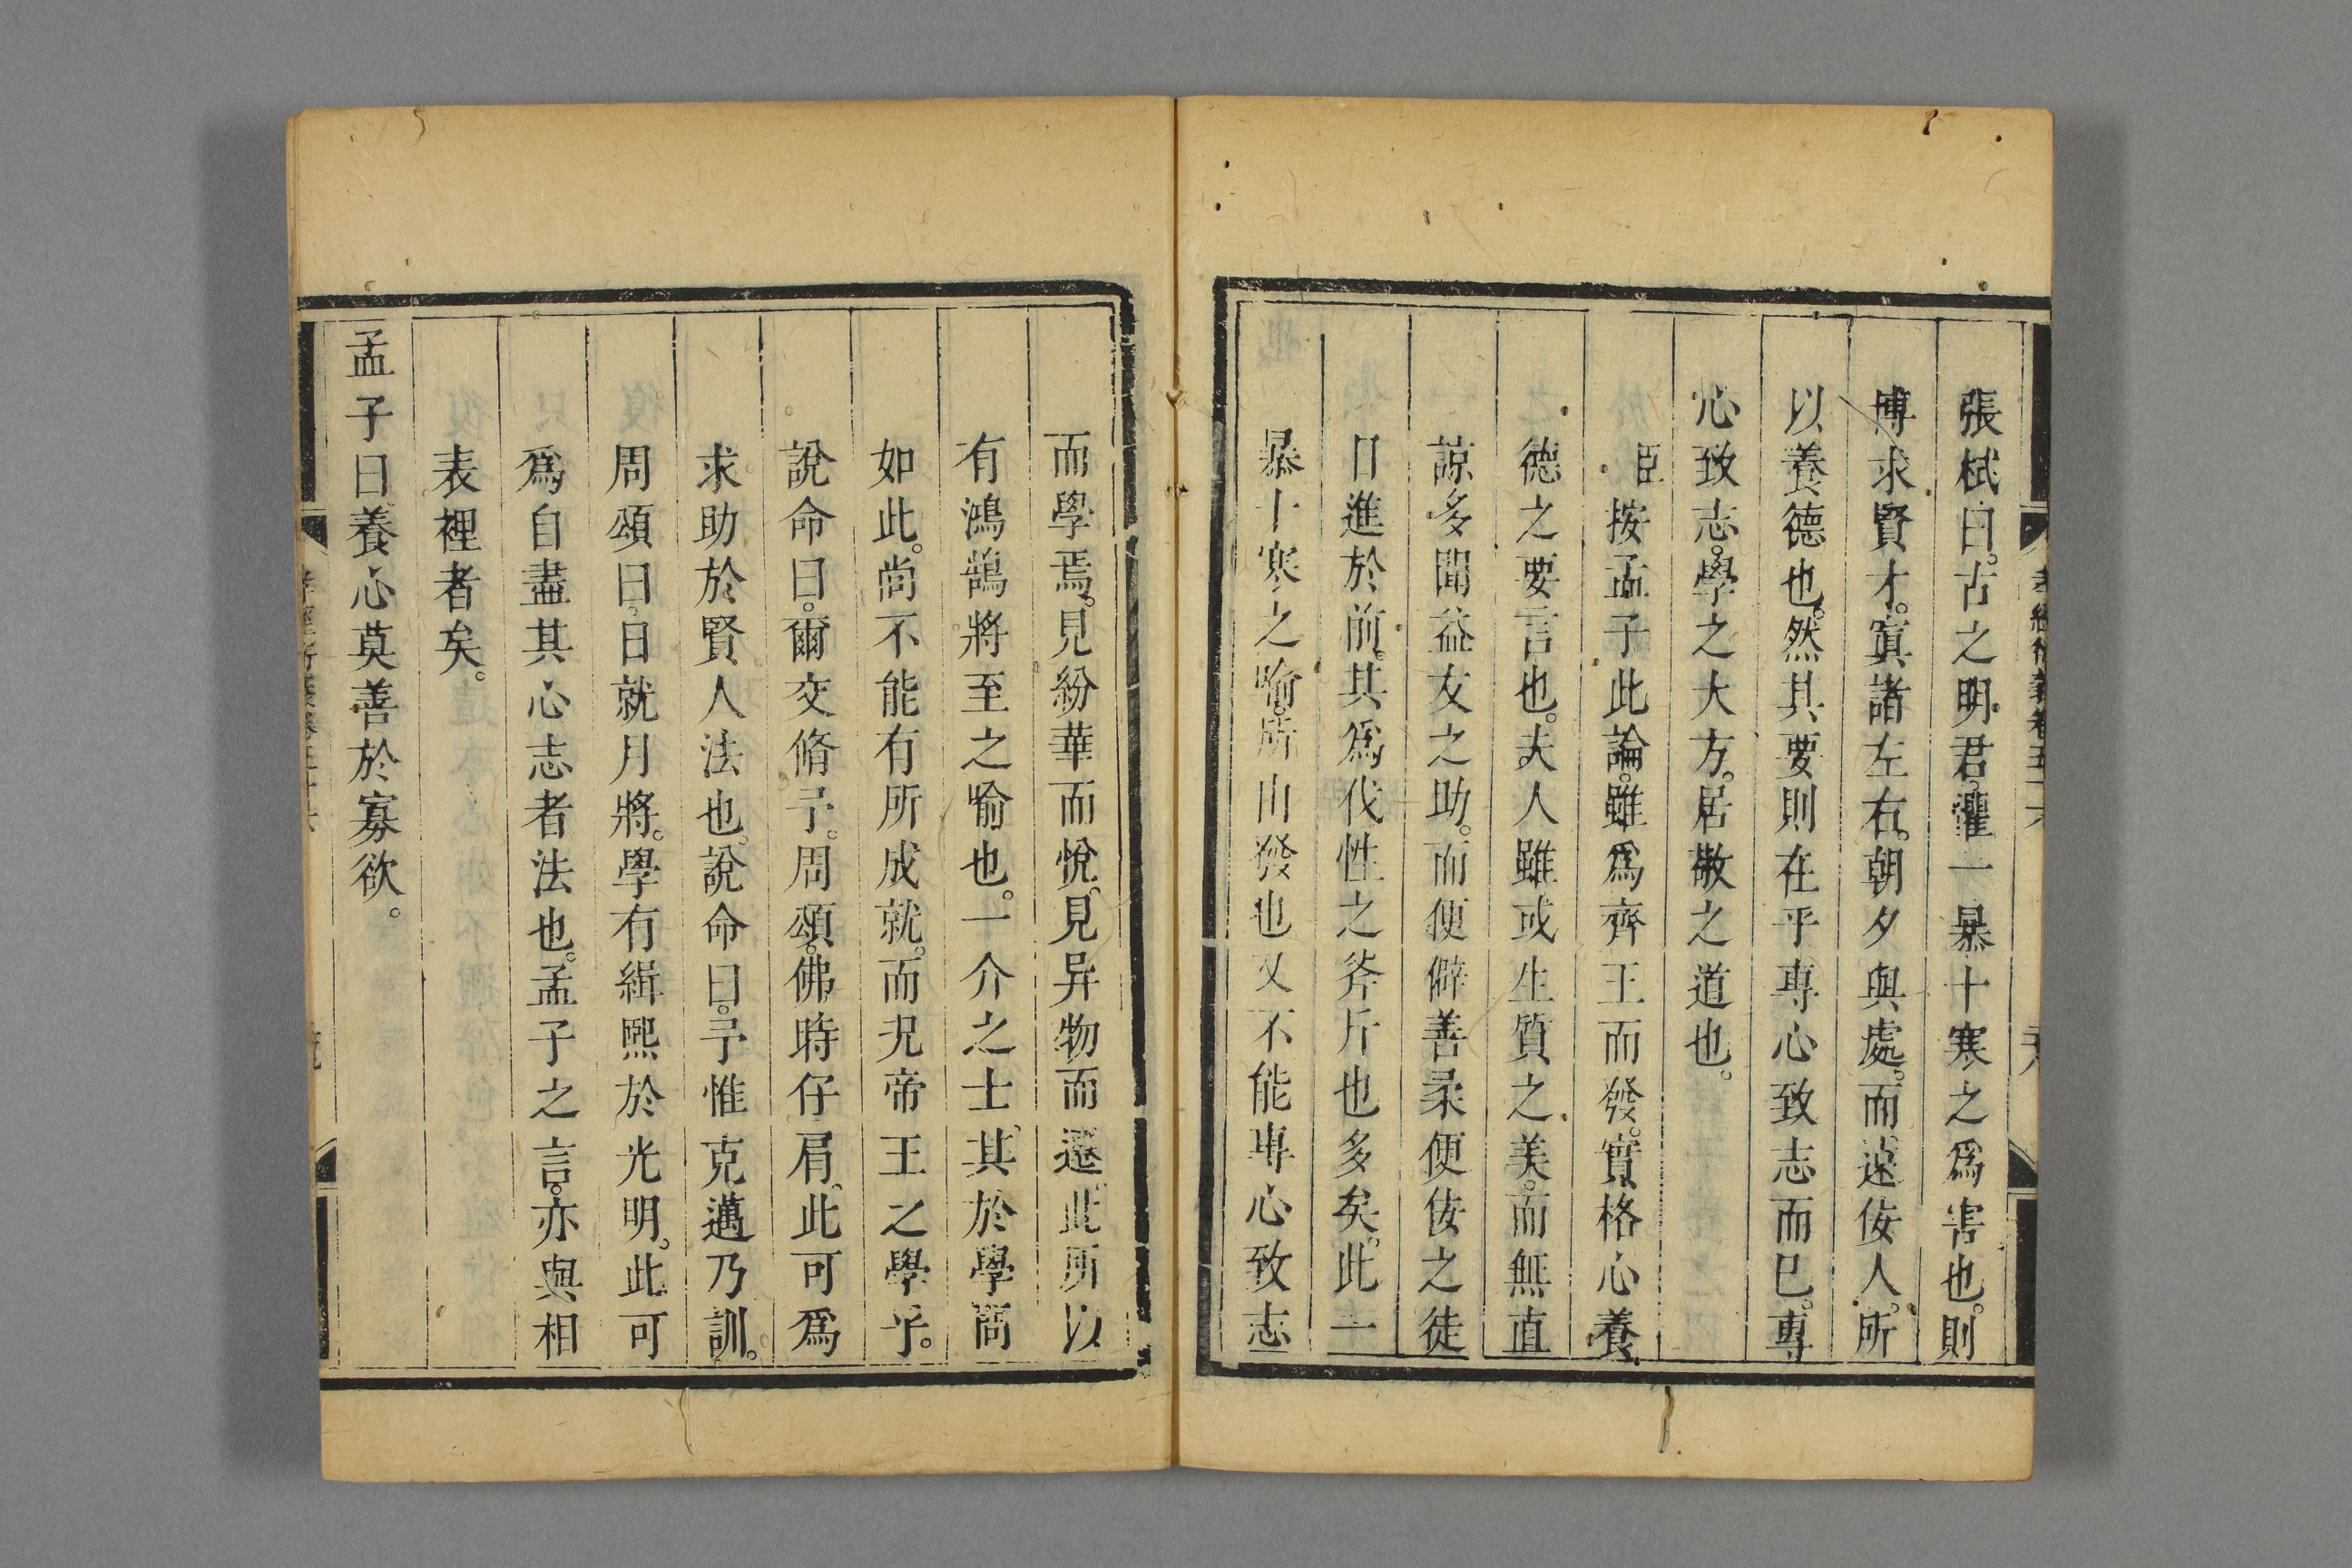 張栻曰。古之明君。懼一暴十寒之爲害也。則
博求賢才。寘諸左右。朝夕與處。而遠佞人。所
以養德也。然其要則在乎專心致志而已。專
心致志。學之大方。居敬之道也。
臣按孟子此論。雖爲齊王而發。實格心養
德之要言也。夫人雖或生質之美。而無直
諒多聞益友之助。而便僻善柔便佞之徒
日進於前。其爲伐性之斧斤也多矣。此一
暴十寒之喻。所由發也。又不能專心致志
而學焉。見紛華而悅。見异物而遷。此所以
有鴻鵠將至之喻也。一介之士。其於學問
如此。尚不能有所成就。而况帝王之學乎。
說命曰。爾交脩予。周頌。佛時仔肩。此可爲
求助於賢人法也。說命曰。予惟克邁乃訓。
周頌曰。日就月將。學有緝熙於光明。此可
爲自盡其心志者法也。孟子之言。亦與相
表裡者矣。
孟子曰。養心莫善於寡欲。